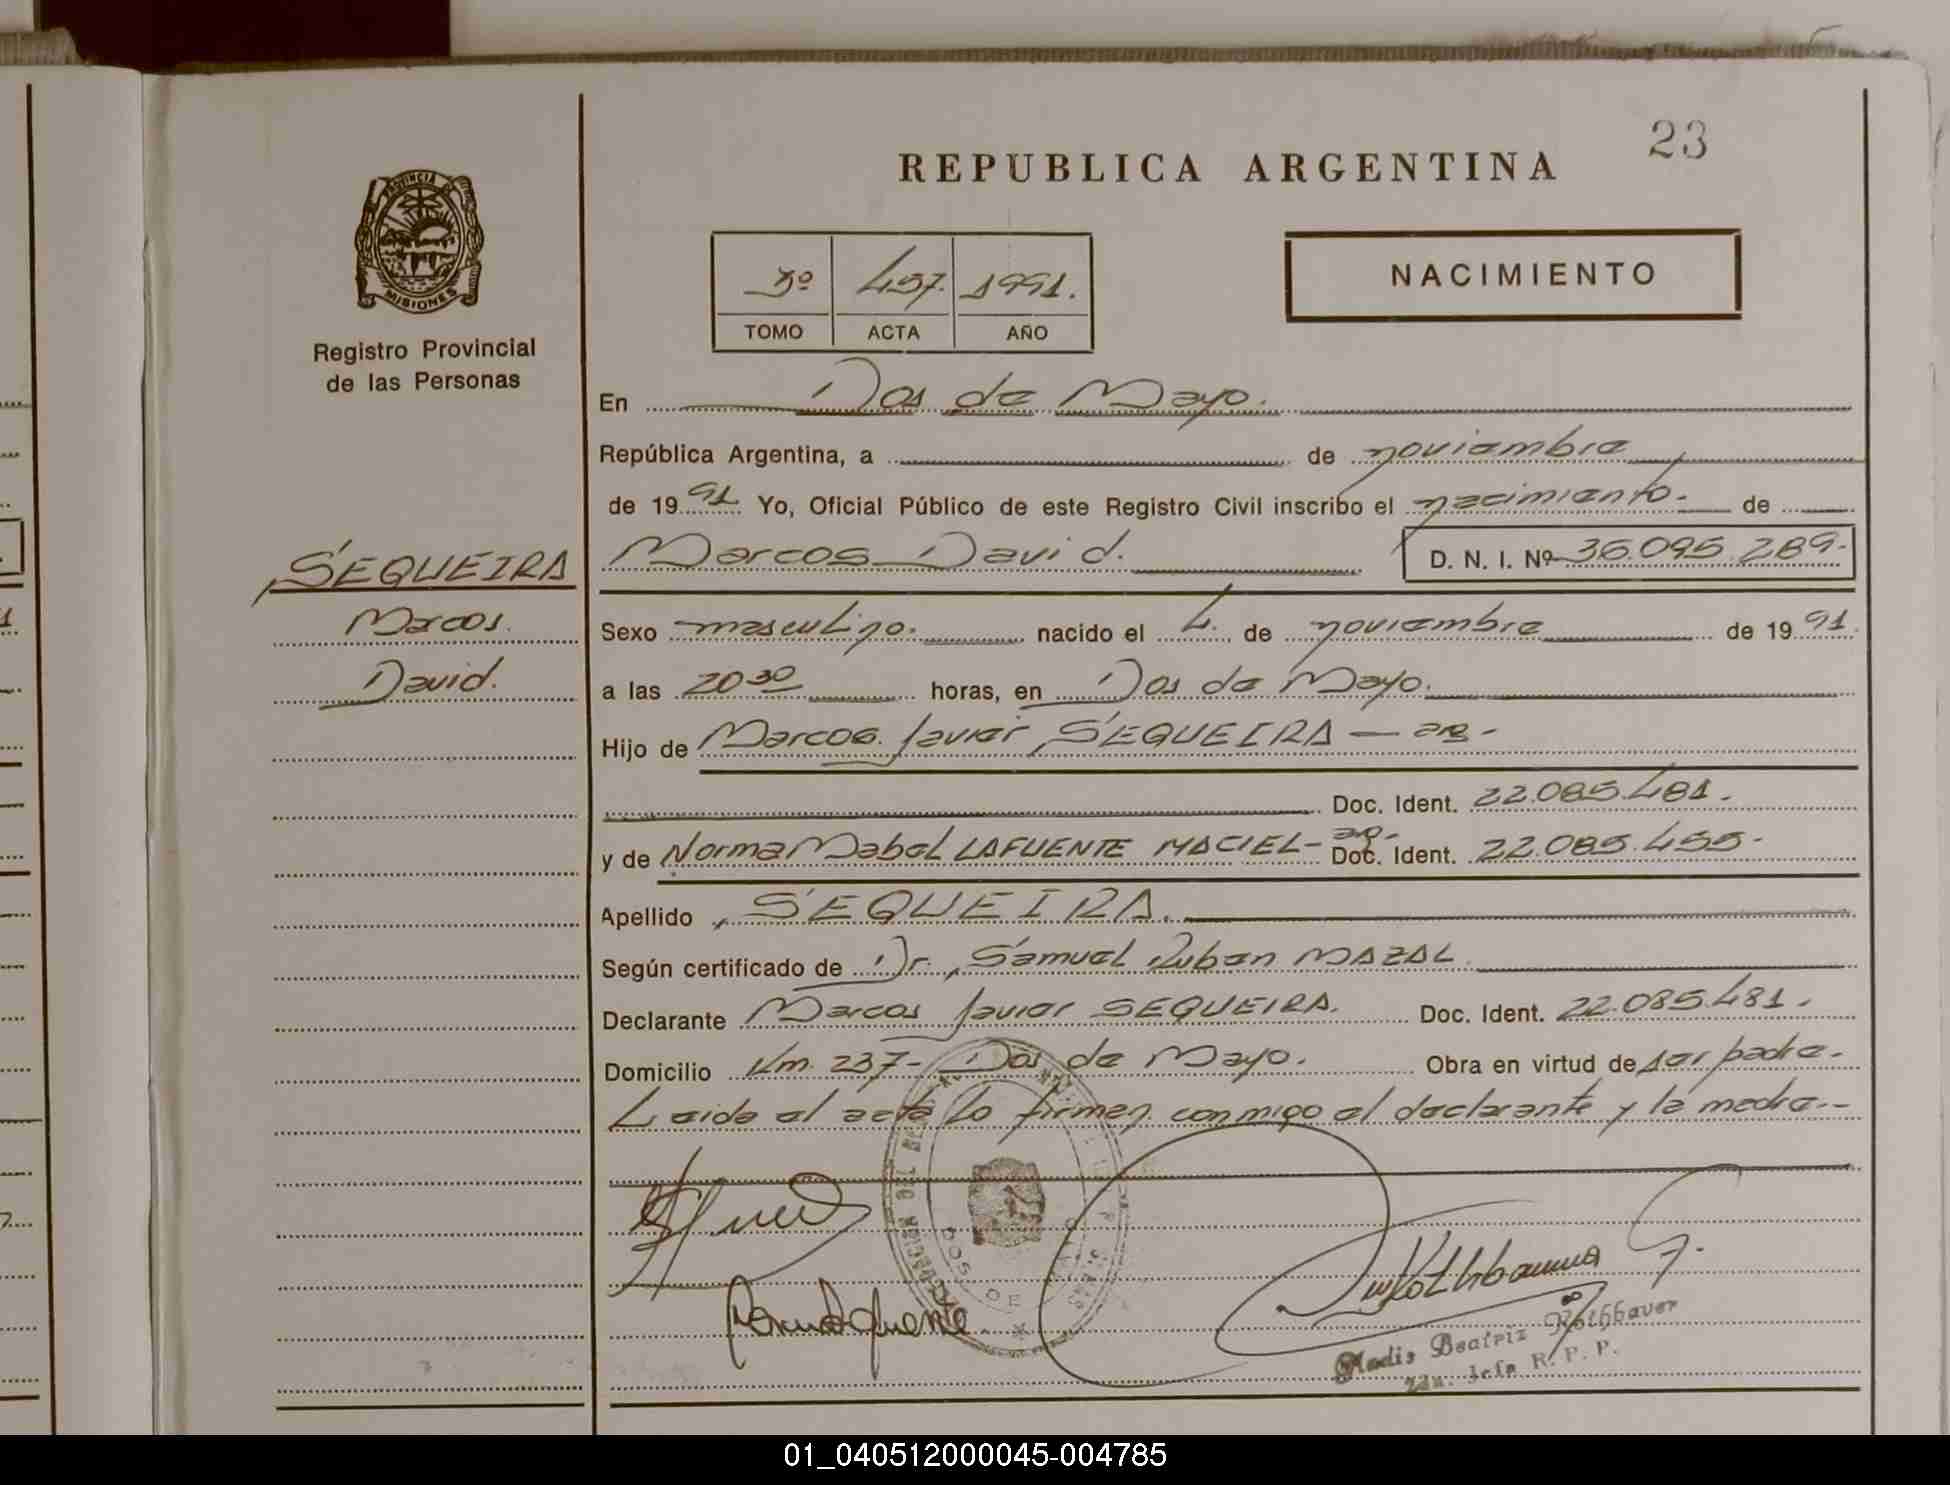 23
REPUBLICA ARGENTINA
PROVINCIA DE
MISIONES
Registro Provincial
de las Personas
3º 457. 1991.
TOMO ACTA AÑO
NACIMIENTO
En Dos de Mayo.
República Argentina, a de noviembre
de 1991 Yo, Oficial Público de este Registro Civil inscribo el nacimiento. de
SEQUEIRA
Marcos.
David.
Marcos David. D. N. I. Nº 36.095.289.
Sexo masculino. nacido el 4. de noviembre de 1991.
a las 20 30 horas, en Dos de Mayo.
Hijo de Marcos Javier SEQUEIRA — arg -
Doc. Ident. 22.085.481.
y de Norma Mabel LAFUENTE MACIEL - arg - Doc. Ident. 22.085.455.
Apellido SEQUEIRA.
Según certificado de Dr. Samuel Ruben MAZAL
Declarante Marcos Javier SEQUEIRA. Doc. Ident. 22.085.481.
Domicilio Km. 237 - Dos de Mayo. Obra en virtud de ser padre.
Leida el acta lo firman conmigo el declarante y la madre.-
DOS DE
Beatriz Rothbauer
Jefa R. P. P.
01_040512000045-004785